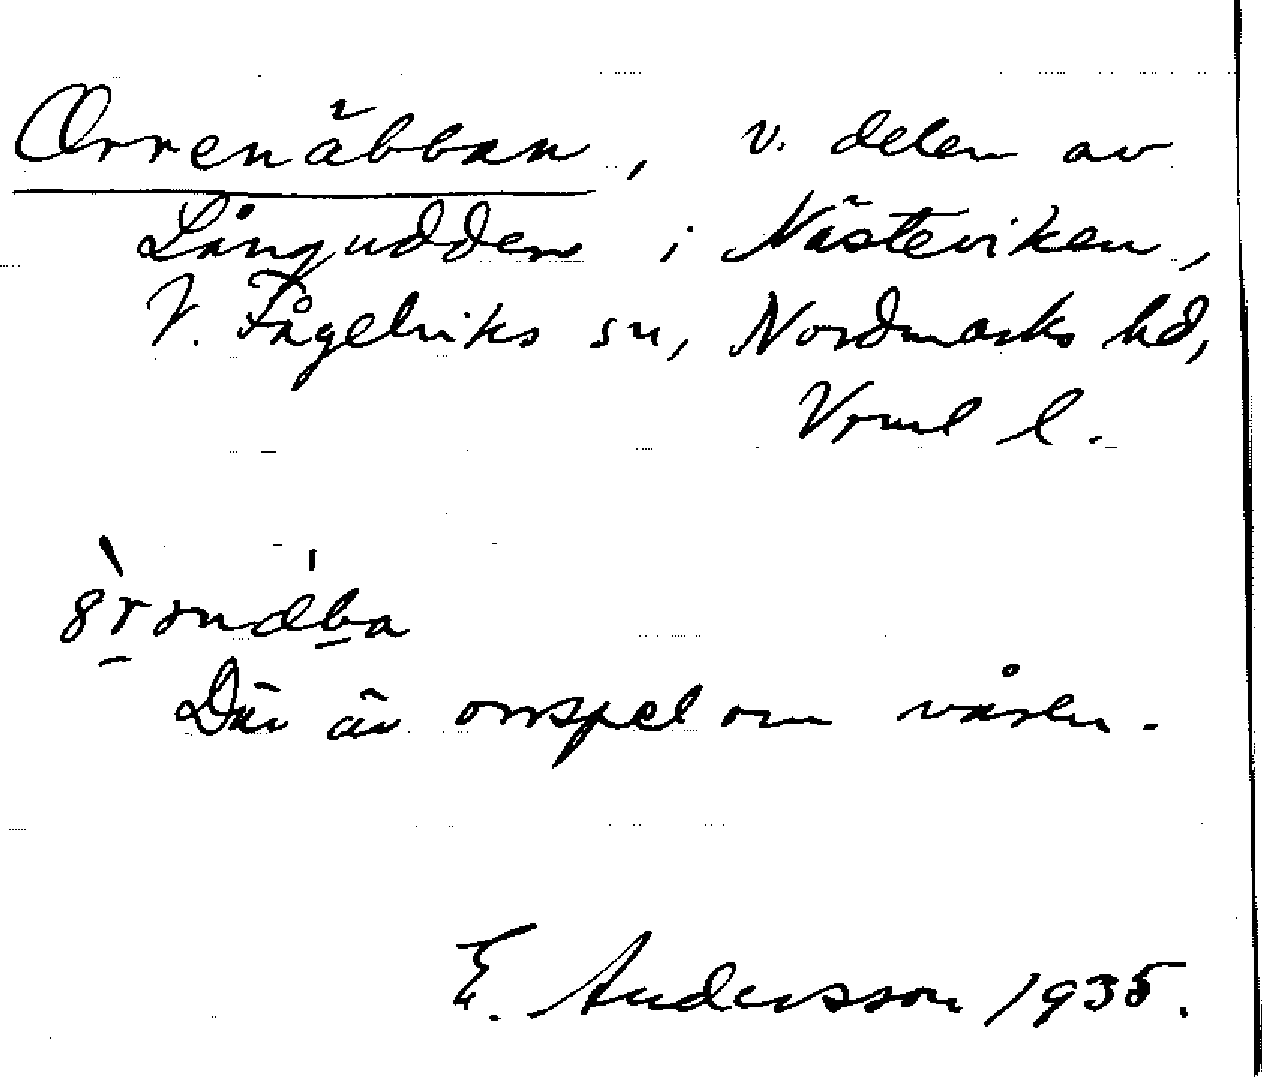 Orrenäbban, v. delen av
Långudden i Nästeviken,
V. Fågelviks sn, Nordmarks hd,
Vrml l.
Där är orrspel om våren.
E. Andersson 1935.